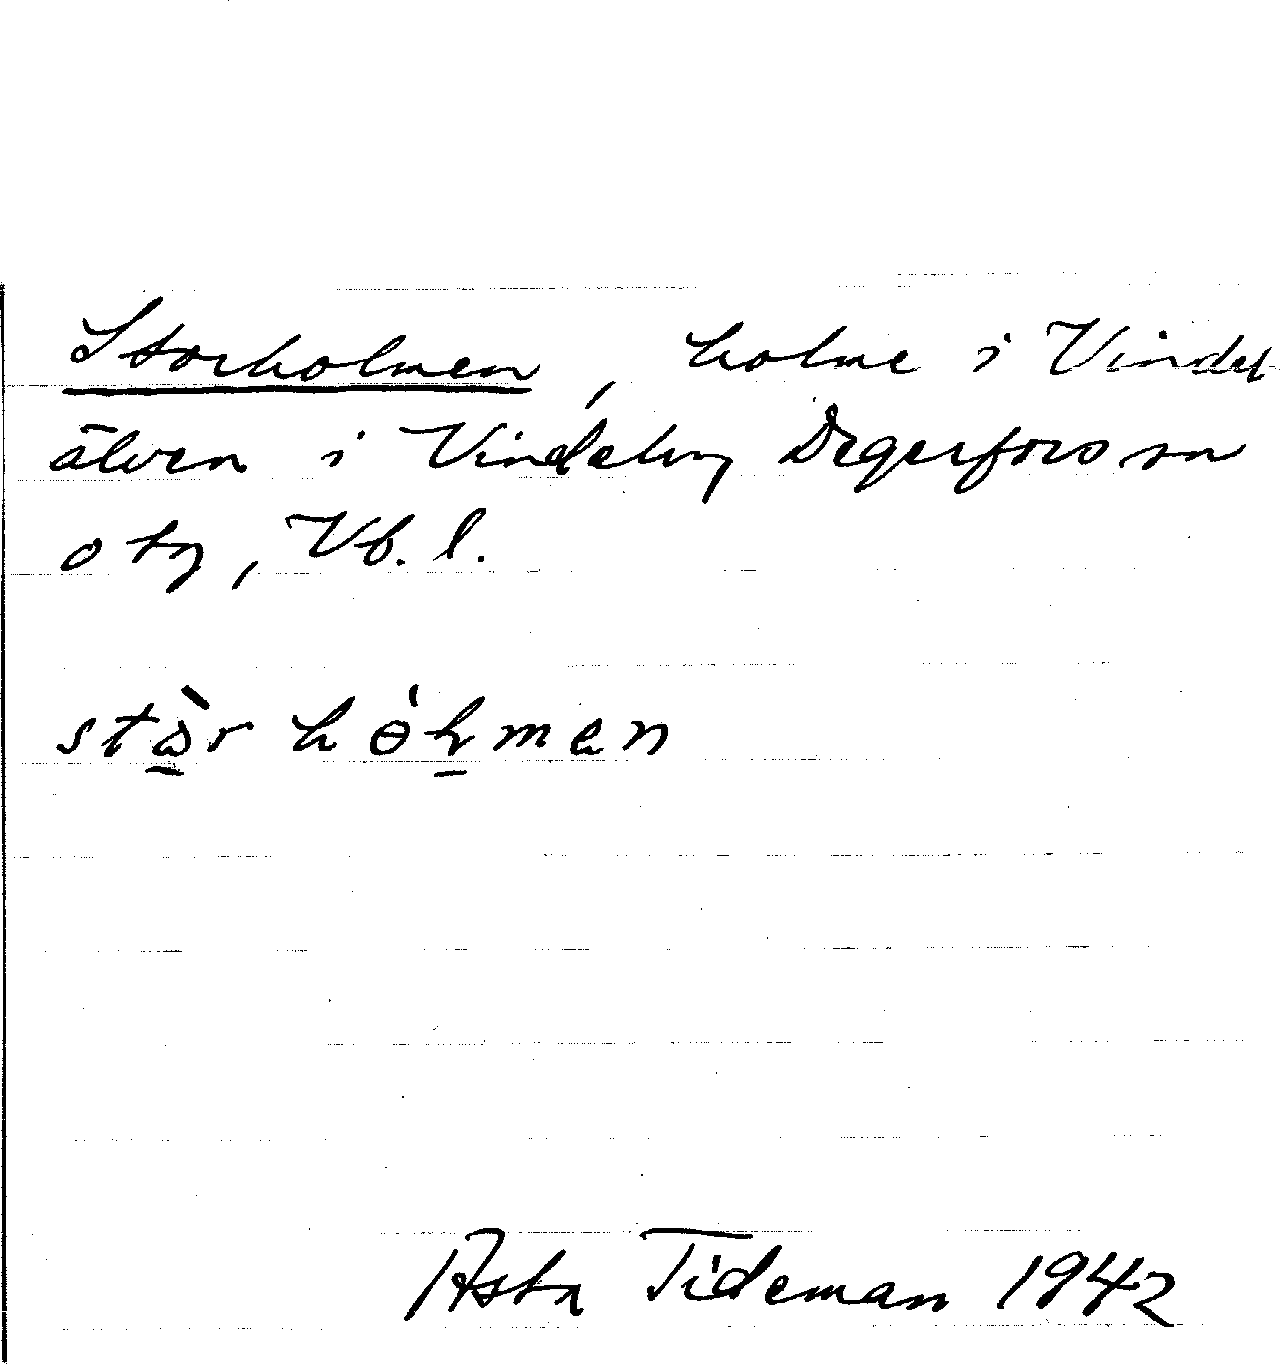 Storholmen, holme i Vindel
älven i Vindeln, Degerfors sn
o tg, Vb. l.
stàr hölmen
Asta Tideman 1942